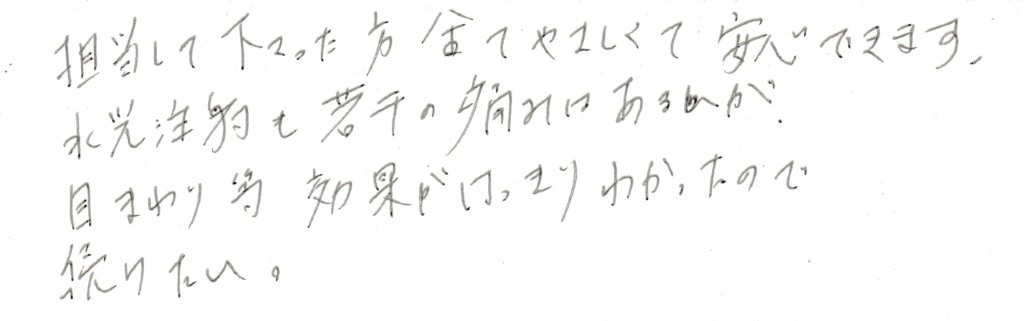 担当して下さった方全てやさしくて安心できます。
水光注射も若干の痛みはあるが
目まわり等効果がはっきりわかったので
続けたい。